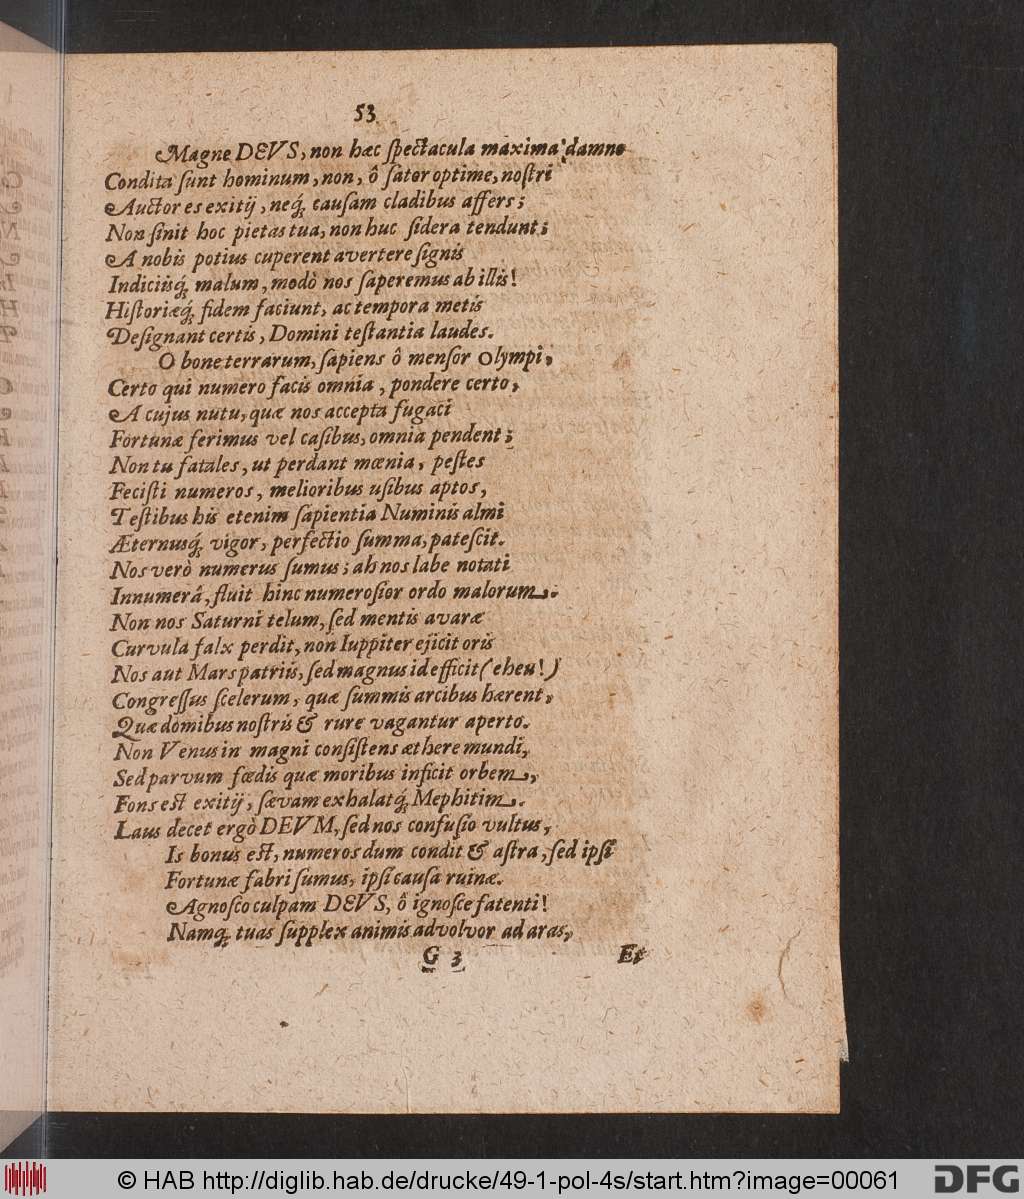 53
Magne DEVS, non hæc ſpectacula maxima damno
Condita ſunt hominum, non, ô ſator optime, noſtri
Auctor es exitij, neq́; cauſam cladibus affers;
Non ſinit hoc pietas tua, non huc ſidera tendunt;
A nobis potius cuperent avertere ſignis
Indiciisq́; malum, modò nos ſaperemus ab illis!
Hiſtoriæq́; fidem faciunt, ac tempora metis
Deſignant certis, Domini teſtantia laudes.
O bone terrarum, ſapiens ô menſor Olympi,
Certo qui numero facis omnia, pondere certo,
A cujus nutu, quæ nos accepta fugaci
Fortunæ ferimus vel caſibus, omnia pendent;
Non tu fatales, ut perdant mœnia, peſtes
Feciſti numeros, melioribus uſibus aptos,
Teſtibus his etenim ſapientia Numinis almi
Æternusq́; vigor, perfectio ſumma, pateſcit.
Nos verò numerus ſumus; ah nos labe notati
Innumerâ, fluit hinc numeroſior ordo malorum.
Non nos Saturni telum, ſed mentis avaræ
Curvula falx perdit, non Iuppiter ejicit oris
Nos aut Mars patriis, ſed magnus id efficit (eheu!)
Congreſſus ſcelerum, quæ ſummis arcibus hærent,
Quæ domibus noſtris & rure vagantur aperto.
Non Venus in magni conſiſtens æthere mundi,
Sed parvum fœdis quæ moribus inficit orbem,
Fons est exitij, ſævam exhalatq́; Mephitim.
Laus decet ergò DEVM, ſed nos confuſio vultus,
Is bonus est, numeros dum condit & aſtra, ſed ipſi
Fortunæ fabri ſumus, ipſi cauſa ruinæ.
Agnoſco culpam DEVS, ô ignoſce fatenti!
Namq́; tuas ſupplex animis advolvor ad aras,
G 3 Et
© HAB http://diglib.hab.de/drucke/49-1-pol-4s/start.htm?image=00061
DFG